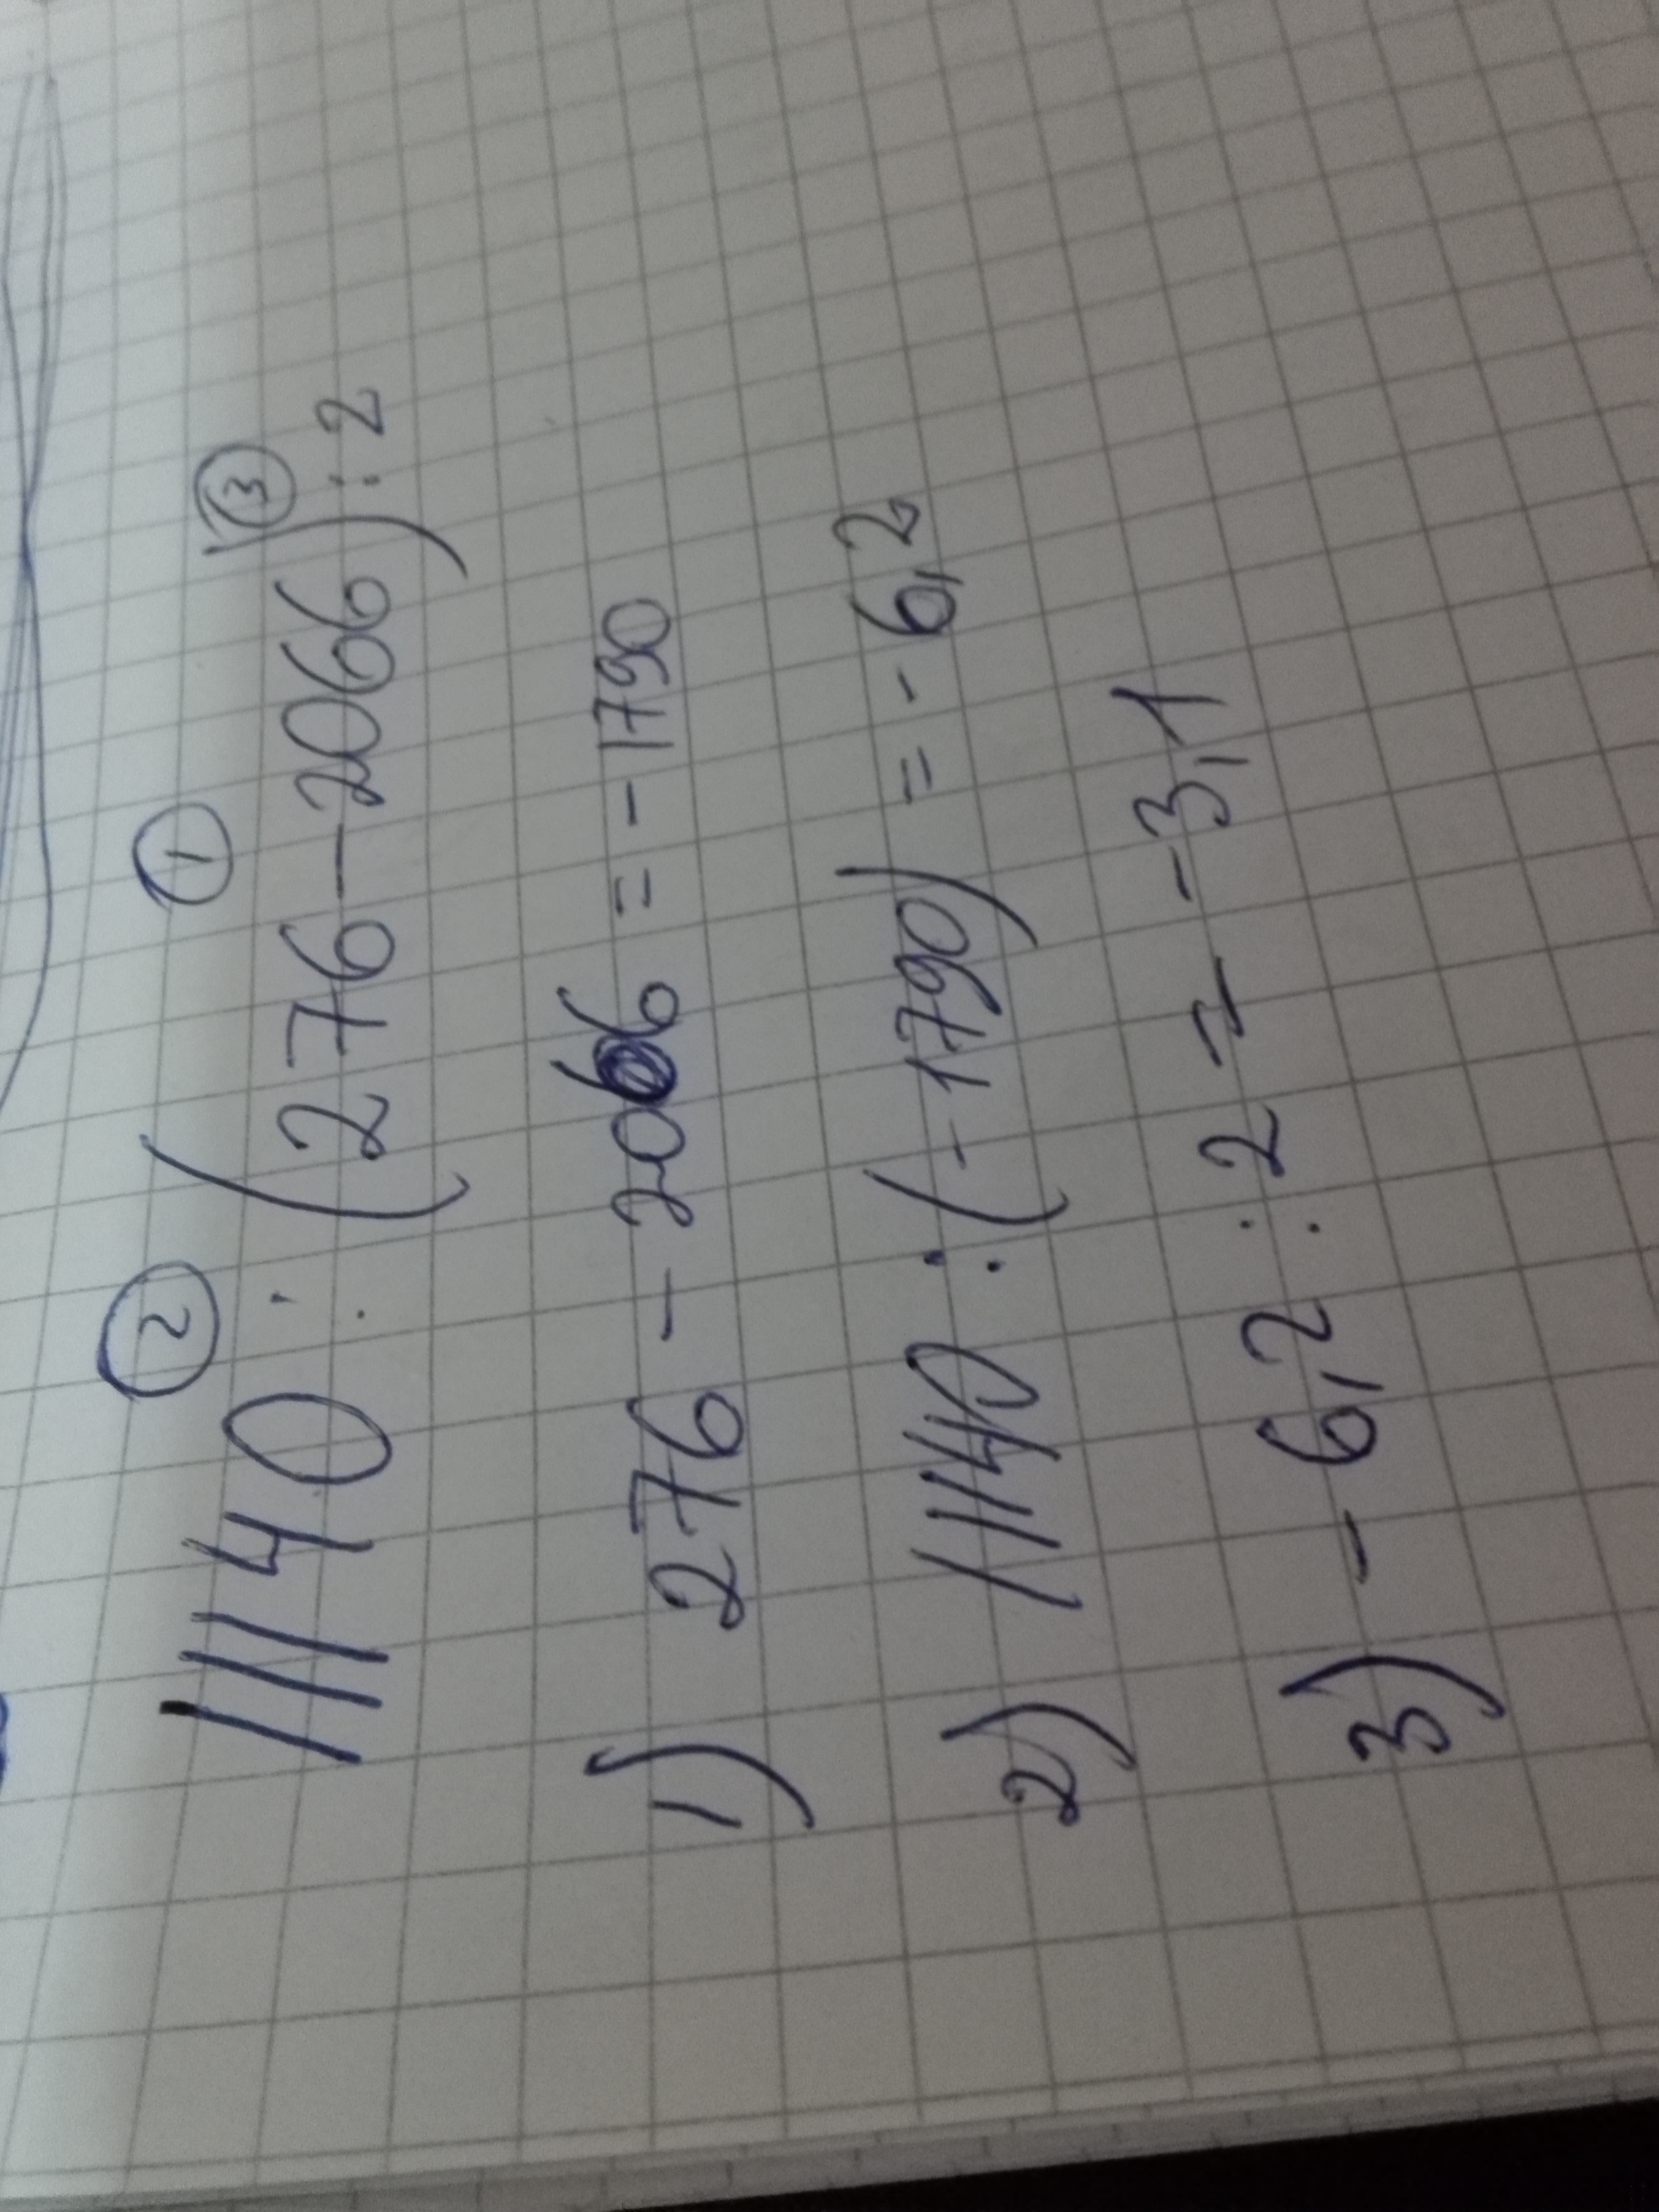 ② ① ③
11140 : (276-2066) : 2
1) 276 - 2066 = - 1790
2) 11140 : (- 1790) = - 6,2
3) - 6,2 : 2 = - 3,1